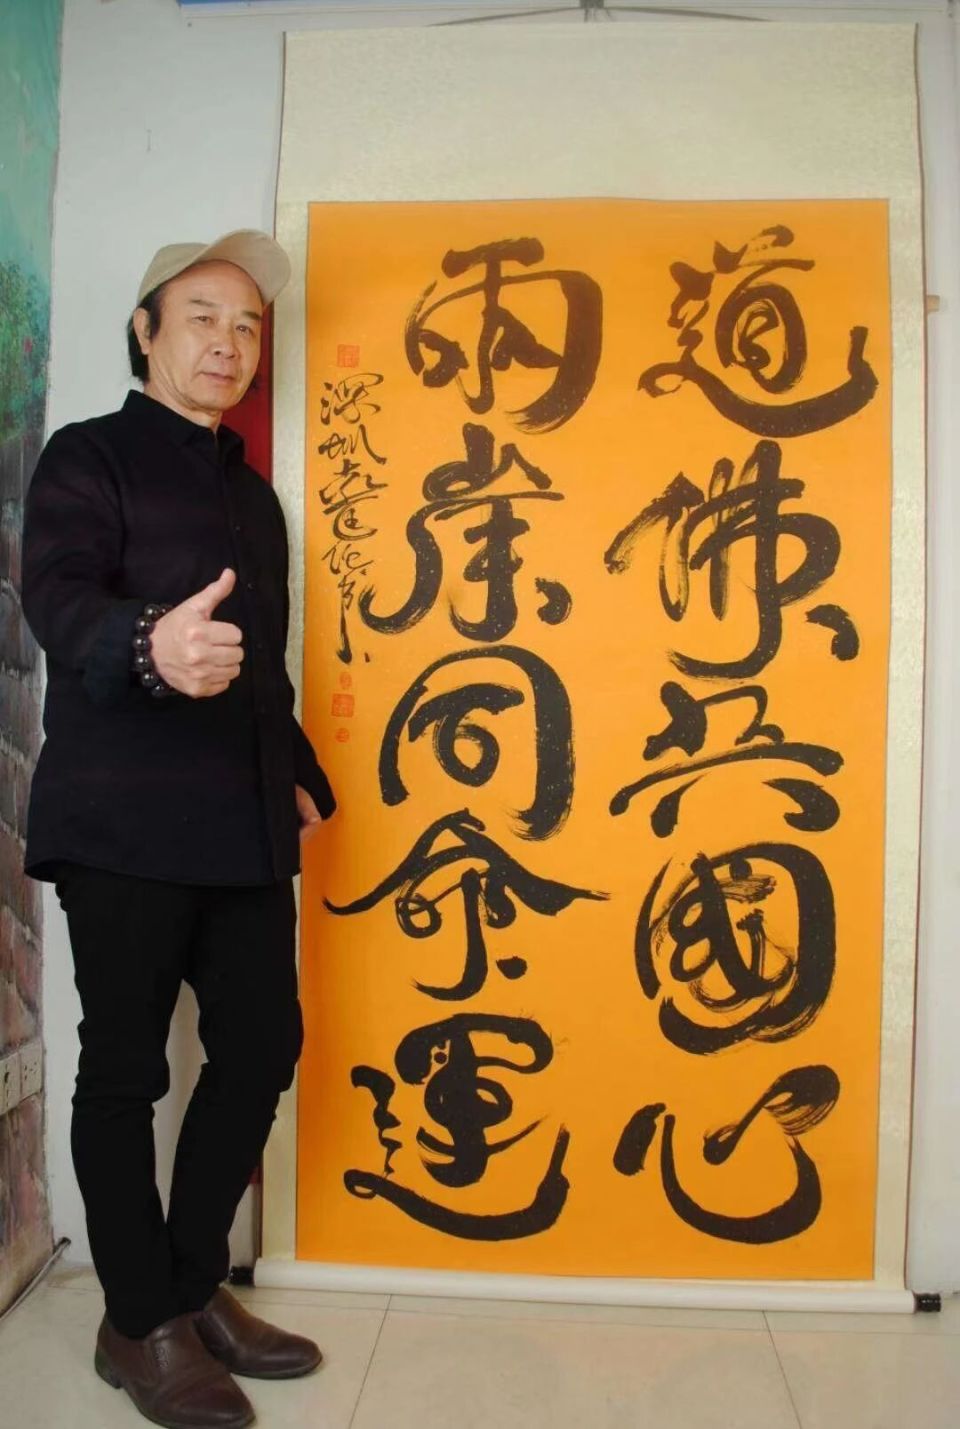 道佛共國心
兩岸同命運
深圳